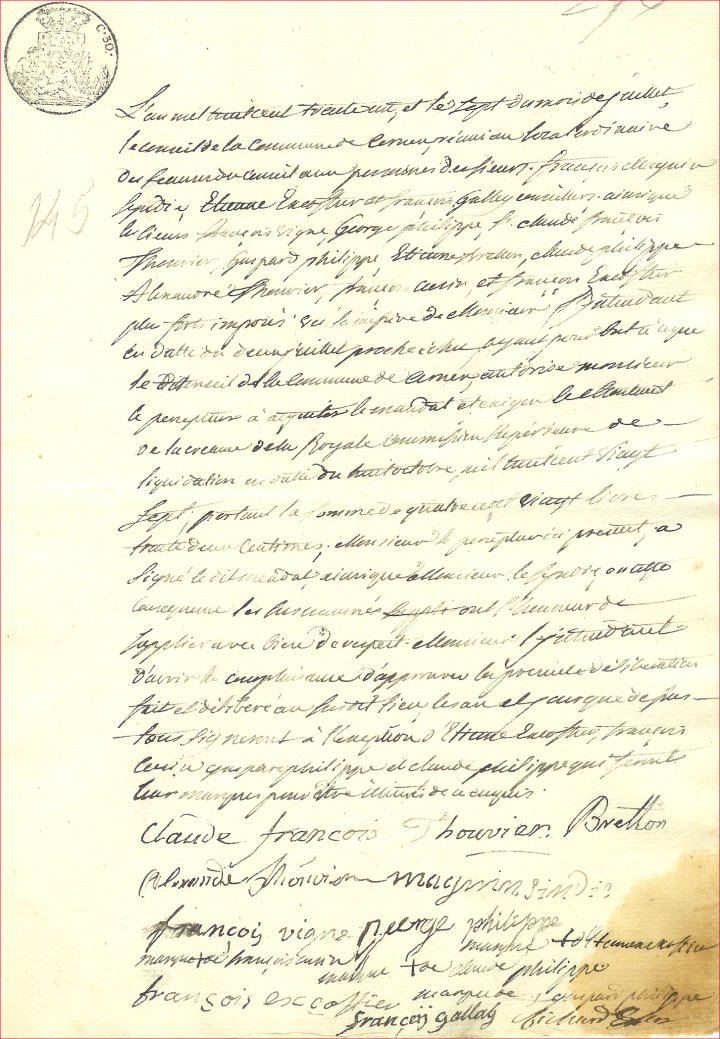 C. 30.
145
L'an mil huit cent trente un, et le sept du mois de juillet
le conseil de la Commune de Cernex, réuni au local ordinaire
des séances du conseil aux personnes des sieurs françois Magnin
sindic Etienne Excoffier et françois Gallay conseillers, ainsi que
les sieurs françois vigne, George philippe, claude françois
Thouvier, Gaspard philippe Etienne Bretton, claude philippe
Alexandre Thouvier, françois et françois Excoffier
plus forts imposés sur la de Monsieur L'Intendant
en datte du deux juillet ayant pour but à ce que
le dit conseil de la Commune de Cernex, autorise monsieur
le percepteur à acquiter le mandat et exiger le montant
de la creance de la Royale Commission Supérieure de
liquidation en datte du huit octobre, mil huit cent vingt
sept, portant la somme de quatre cent vingt livres
trente deux Centimes, Monsieur le percepteur ici présent, a
signé le dit mandat, ainsi que Monsieur le syndic, en
consequence les susnommés ont l'honneur de
supplier avec bien de respect Monsieur L'Intendant
d'avoir la complaisance d'approuver la presente deliberation
fait et délibéré au susdit lieu, les an et jour que dessus
tous signeront à l'exception d'Etienne Excoffier, françois
gaspard philippe et claude philippe qui feront
leur marques pour être illiterés de ce enquis.
Claude françois Thouvier. Bretton
Alexandre Thouvier magnin Sindic
françois vigne george philippe
marque + d'Etienne excoffier
marque + de françois
marque + de claude philippe
françois excoffier marque de gaspard philippe
françois Gallay